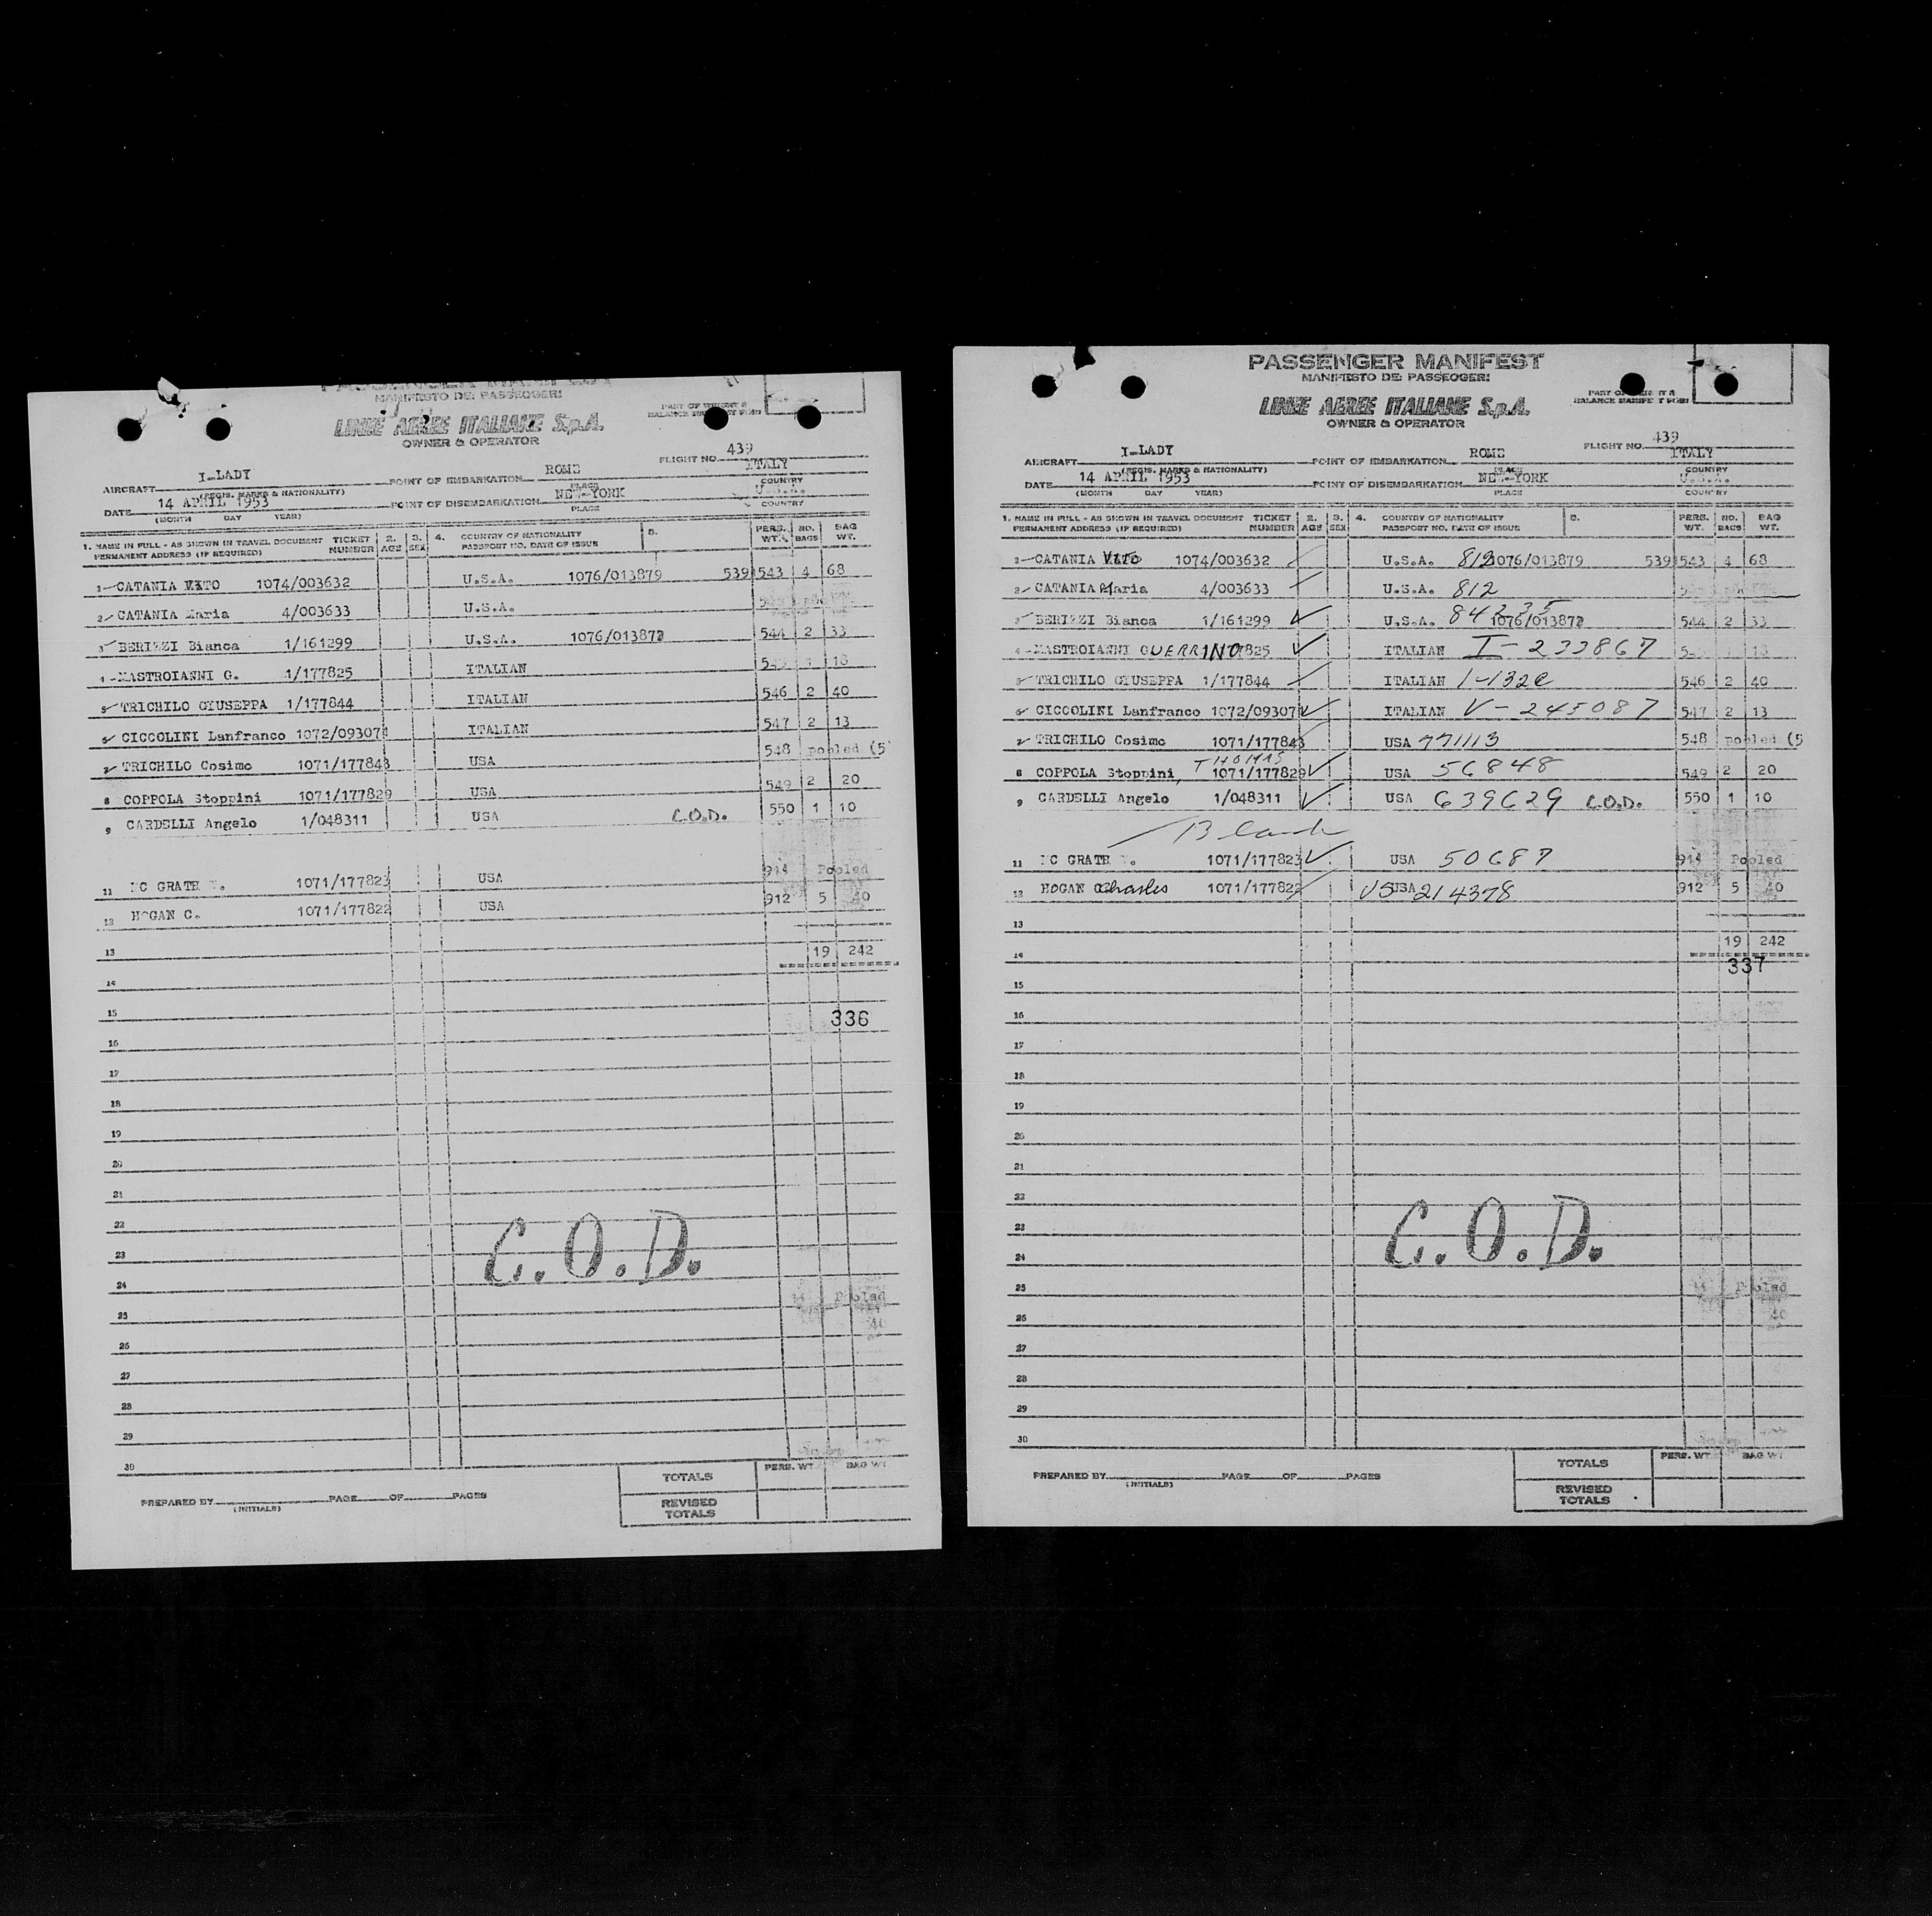 MANIFESTO DEI PASSEGGERI
LINEE AEREE ITALIANE S.p.A.
OWNER & OPERATOR
FLIGHT NO. 439
AIRCRAFT I-LADY POINT OF EMBARKATION ROME ITALY
(REGIS. MARKS & NATIONALITY) PLACE COUNTRY
DATE 14 APRIL 1953 POINT OF DISEMBARKATION NEW-YORK U.S.A.
(MONTH DAY YEAR) PLACE COUNTRY
1. NAME IN FULL - AS SHOWN IN TRAVEL DOCUMENT TICKET 2. 3. 4. COUNTRY OF NATIONALITY 5. PERS. NO. BAG
PERMANENT ADDRESS (IF REQUIRED) NUMBER AGE SEX PASSPORT NO. DATE OF ISSUE WT. BAGS WT.
1 CATANIA VITO 1074/003632 U.S.A. 1076/013879 539 543 4 68
2 CATANIA Maria 4/003633 U.S.A.
3 BERIZZI Bianca 1/161299 U.S.A. 1076/013872 544 2 33
4 MASTROIANNI G. 1/177825 ITALIAN 18
5 TRICHILO GIUSEPPA 1/177844 ITALIAN 546 2 40
6 CICCOLINI Lanfranco 1072/093071 ITALIAN 547 2 13
7 TRICHILO Cosimo 1071/177843 USA 548 pooled (5
8 COPPOLA Stoppini 1071/177829 USA 549 2 20
9 CARDELLI Angelo 1/048311 USA C.O.D. 550 1 10
11 MC GRATH 1071/177823 USA 914 Pooled
12 HOGAN C. 1071/177822 USA 912 5 40
13 19 242
14
15 336
16
17
18
19
20
21
22
23 C.O.D.
24
25 Pooled
26 40
27
28
29
30
TOTALS PERS. WT BAG WT
PREPARED BY PAGE OF PAGES
(INITIALS)
REVISED
TOTALS
PASSENGER MANIFEST
MANIFESTO DEI PASSEGGERI
LINEE AEREE ITALIANE S.p.A.
OWNER & OPERATOR
FLIGHT NO. 439
AIRCRAFT I-LADY POINT OF EMBARKATION ROME ITALY
(REGIS. MARKS & NATIONALITY) PLACE COUNTRY
DATE 14 APRIL 1953 POINT OF DISEMBARKATION NEW-YORK U.S.A.
(MONTH DAY YEAR) PLACE COUNTRY
1. NAME IN FULL - AS SHOWN IN TRAVEL DOCUMENT TICKET 2. 3. 4. COUNTRY OF NATIONALITY 5. PERS. NO. BAG
PERMANENT ADDRESS (IF REQUIRED) NUMBER AGE SEX PASSPORT NO. DATE OF ISSUE WT. BAGS WT.
CATANIA VITO 1074/003632 U.S.A. 812 1076/013879 539 543 4 68
2 CATANIA Maria 4/003633 U.S.A. 812
3 BERIZZI Bianca 1/161299 U.S.A. 84235 1076/013872 544 2 33
4 MASTROIANNI GUERRINO 825 ITALIAN I-233867 18
5 TRICHILO GIUSEPPA 1/177844 ITALIAN 546 2 40
6 CICCOLINI Lanfranco 1072/093071 ITALIAN V-245087 547 2 13
TRICHILO Cosimo 1071/177843 USA 771113 548 pooled (5
THOMAS
8 COPPOLA Stoppini, 1071/177829 USA 56848 549 2 20
9 CARDELLI Angelo 1/048311 USA 639629 C.O.D. 550 1 10
Blank
11 MC GRATH 1071/177823 USA 50687 914 Pooled
12 HOGAN Charles 1071/177822 USA 214378 912 5 40
13
19 242
14
337
15
16
17
18
19
20
21
22
23 C.O.D.
24
25 Pooled
26 40
27
28
29
30
TOTALS PERS. WT BAG WT
PREPARED BY PAGE OF PAGES
(INITIALS)
REVISED
TOTALS